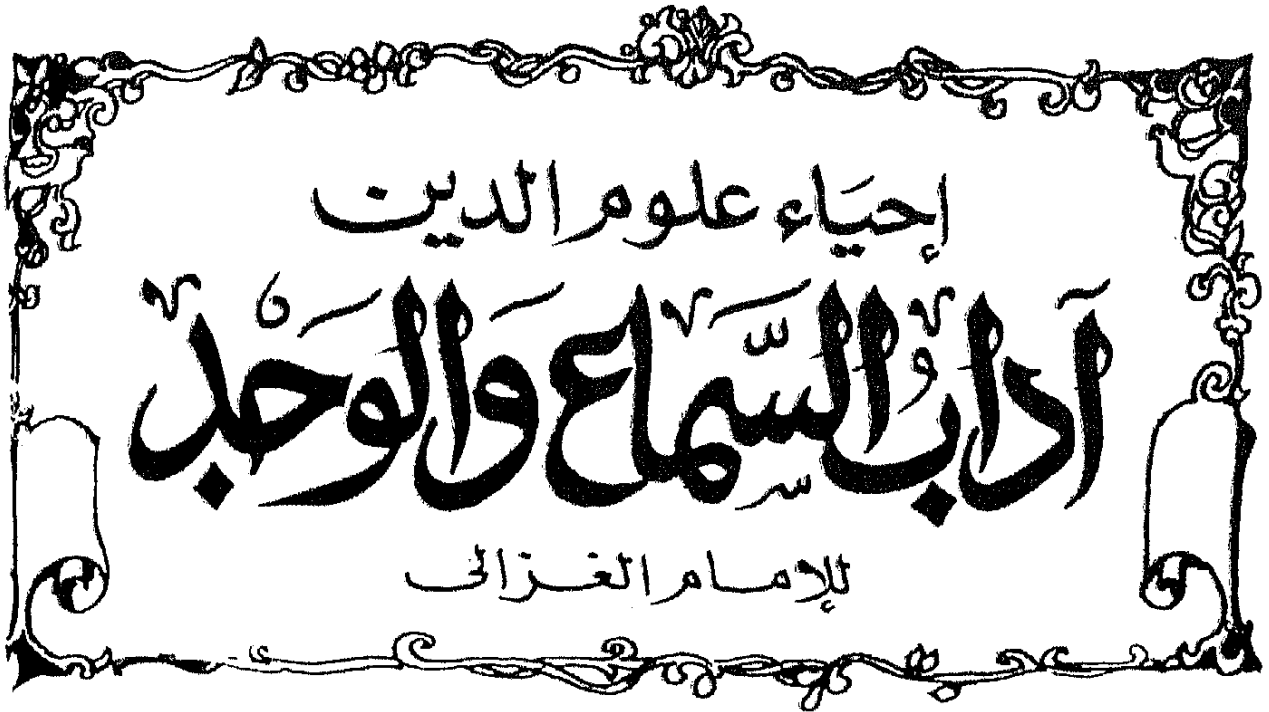 إحياء علوم الدين
آدابُ السَّماع وَالوَجْد
للإمام الغزالى